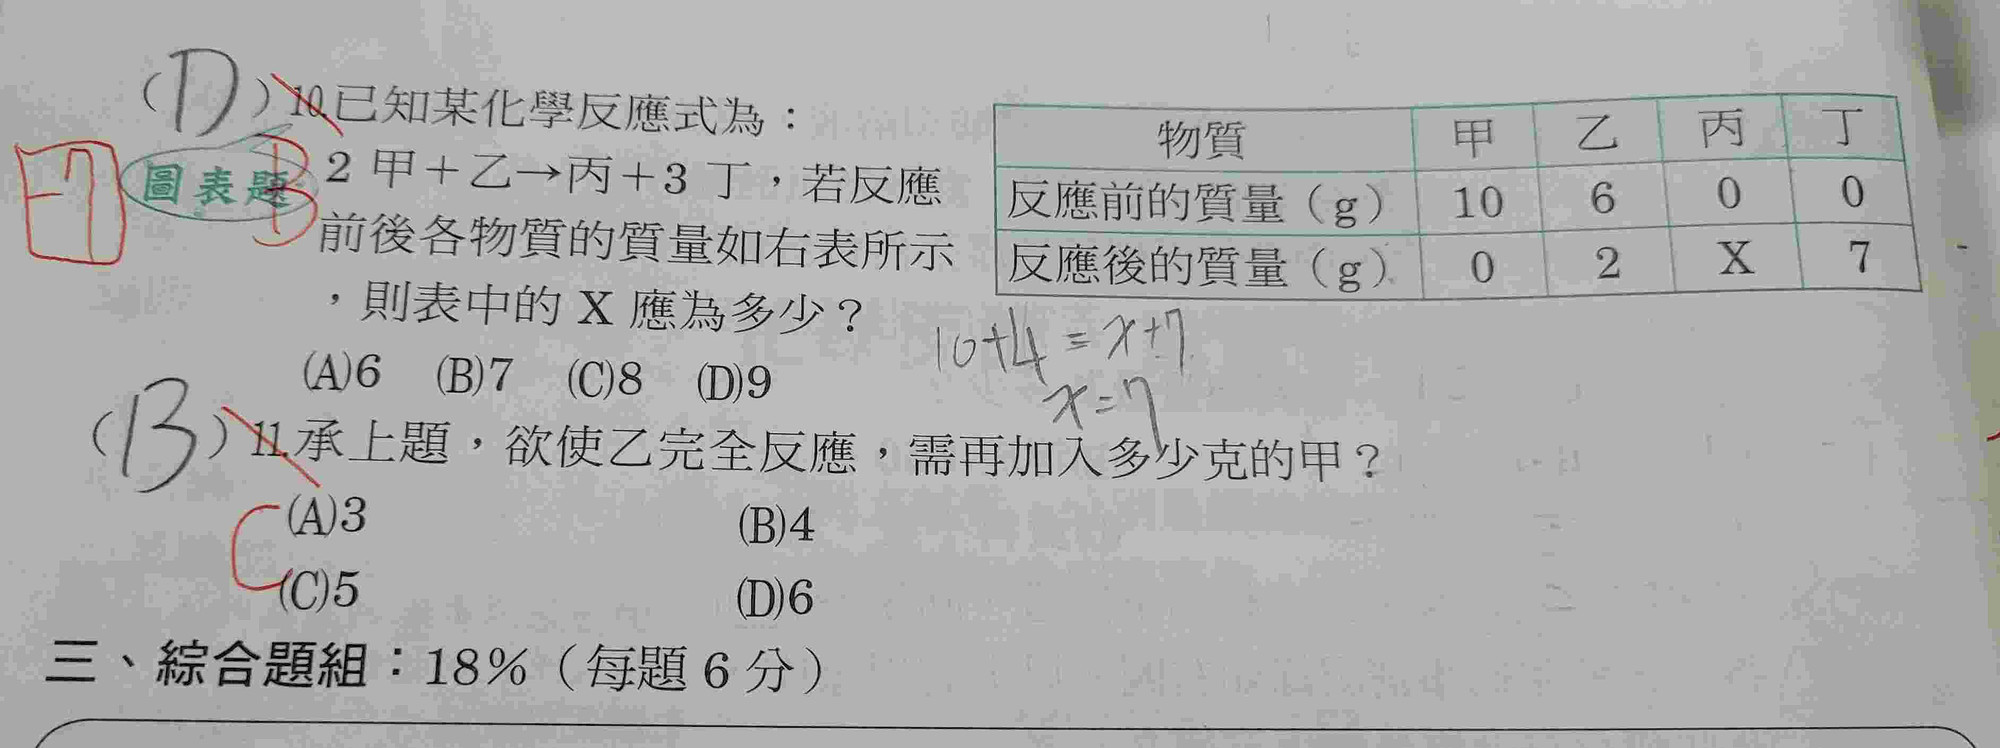 (D) 10.已知某化學反應式為：
圖表題 B 2 甲＋乙→丙＋3 丁，若反應
前後各物質的質量如右表所示
，則表中的 X 應為多少？
(A)6 (B)7 (C)8 (D)9
物質 甲 乙 丙 丁
反應前的質量（g） 10 6 0 0
反應後的質量（g） 0 2 X 7
10+4=x+7
x=7
(B) 11.承上題，欲使乙完全反應，需再加入多少克的甲？
(A)3 (B)4
C (C)5 (D)6
三、綜合題組：18％（每題 6 分）